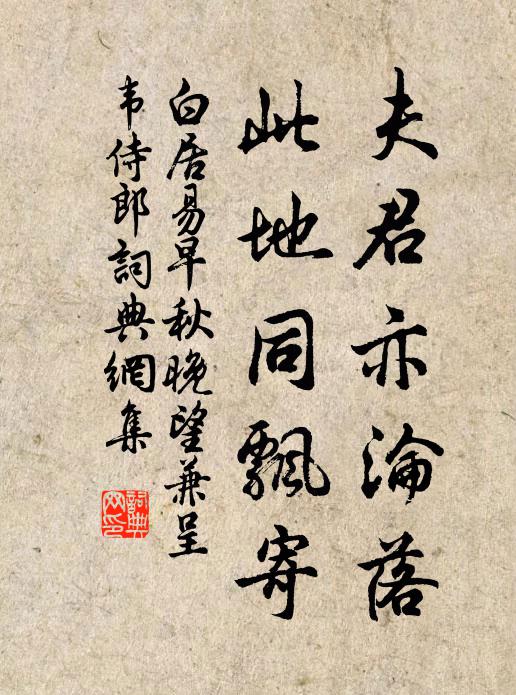 夫君亦淪落
此地同飄寄
白居易早秋晚望兼呈
韦侍郎詞典網集
詞典
网印